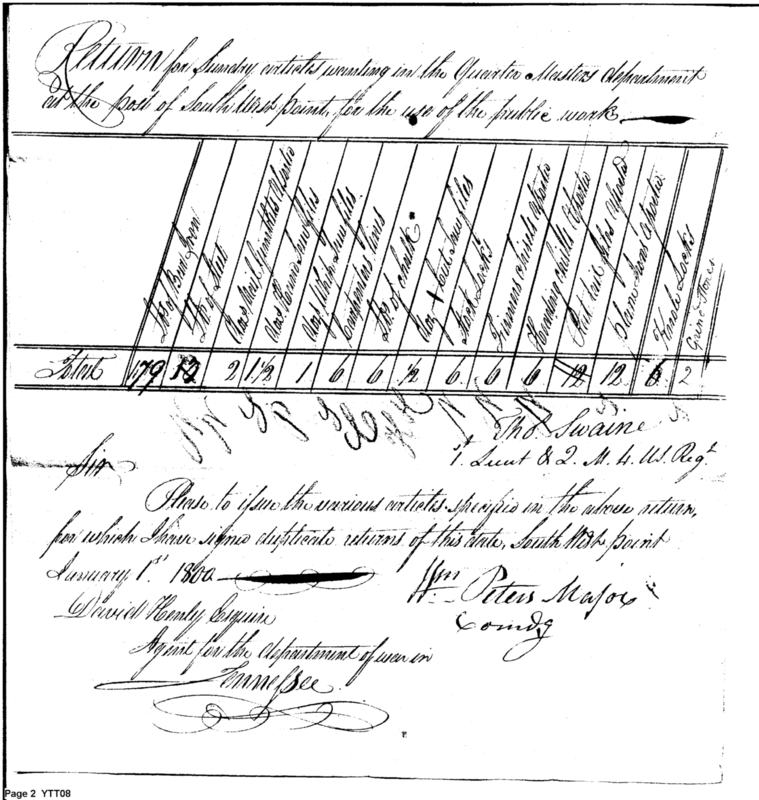 Return for Sundry articles wanting in the Quarter Masters department
at the post of South West point, for the use of the public work
lbs of Barr Iron
lbs of Steel
Doz Nail Gimblets Assorted
Doz Hand Saw files
Doz Whip Saw files
Carpenters
lbs of Chalk
Doz + Cut Saw files
Stock Locks
Firmers Chisels Assorted
Assorted
Rat tail files Assorted
plane Irons Assorted
Locks
Grind Stones
Total 179 2 1½ 1 6 6 ½ 6 6 6 12 12 6 2
Thos Swaine
1st Lieut & Q. M. 4. U.S. Regt
Sir
Please to issue the various articles specified in the above return,
for which I have signed duplicate returns of this date, South West point
January 1st 1800
Wm Peters Major
Comdg
David Henly Esquire
Agent for the department of war in
Tennessee
Page 2 YTT08